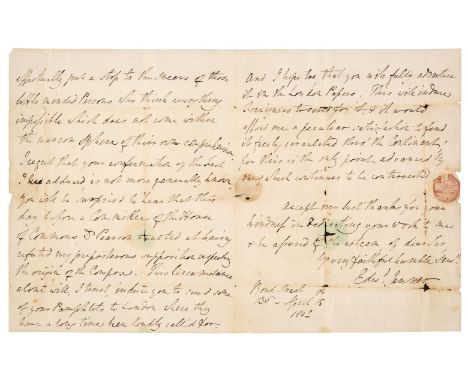 effectually put a stop to the sneers of those
little minded Persons who think everything
impossible which does not come within
the narrow sphere of their own comprehension
I regret that your confirmation of the fact
I have adduced is not more generally known
you will be surprised to hear that this
day before a Committee of the House
of Commons Dr Pearson at having
refuted my preposterous supposition respecting
the origin of the Cowpox. This circumstance
alone will, I trust, induce you to send some
of your Pamphlets to London where they
have a long time been loudly call'd for.
And I hope too, that you will fully advertise
it in the London Papers. This will induce
foreigners to for it, & it would
afford me a peculiar satisfaction to find
it freely circulated thro' the Continent;
for this is the only point advanced by
me which continues to be controverted
Accept my best thanks for your
kindness in your work to me
& be assured of the esteem of dear Sir,
Your faithful humble Servt
Edwd Jenner
Bond Street
April
1802